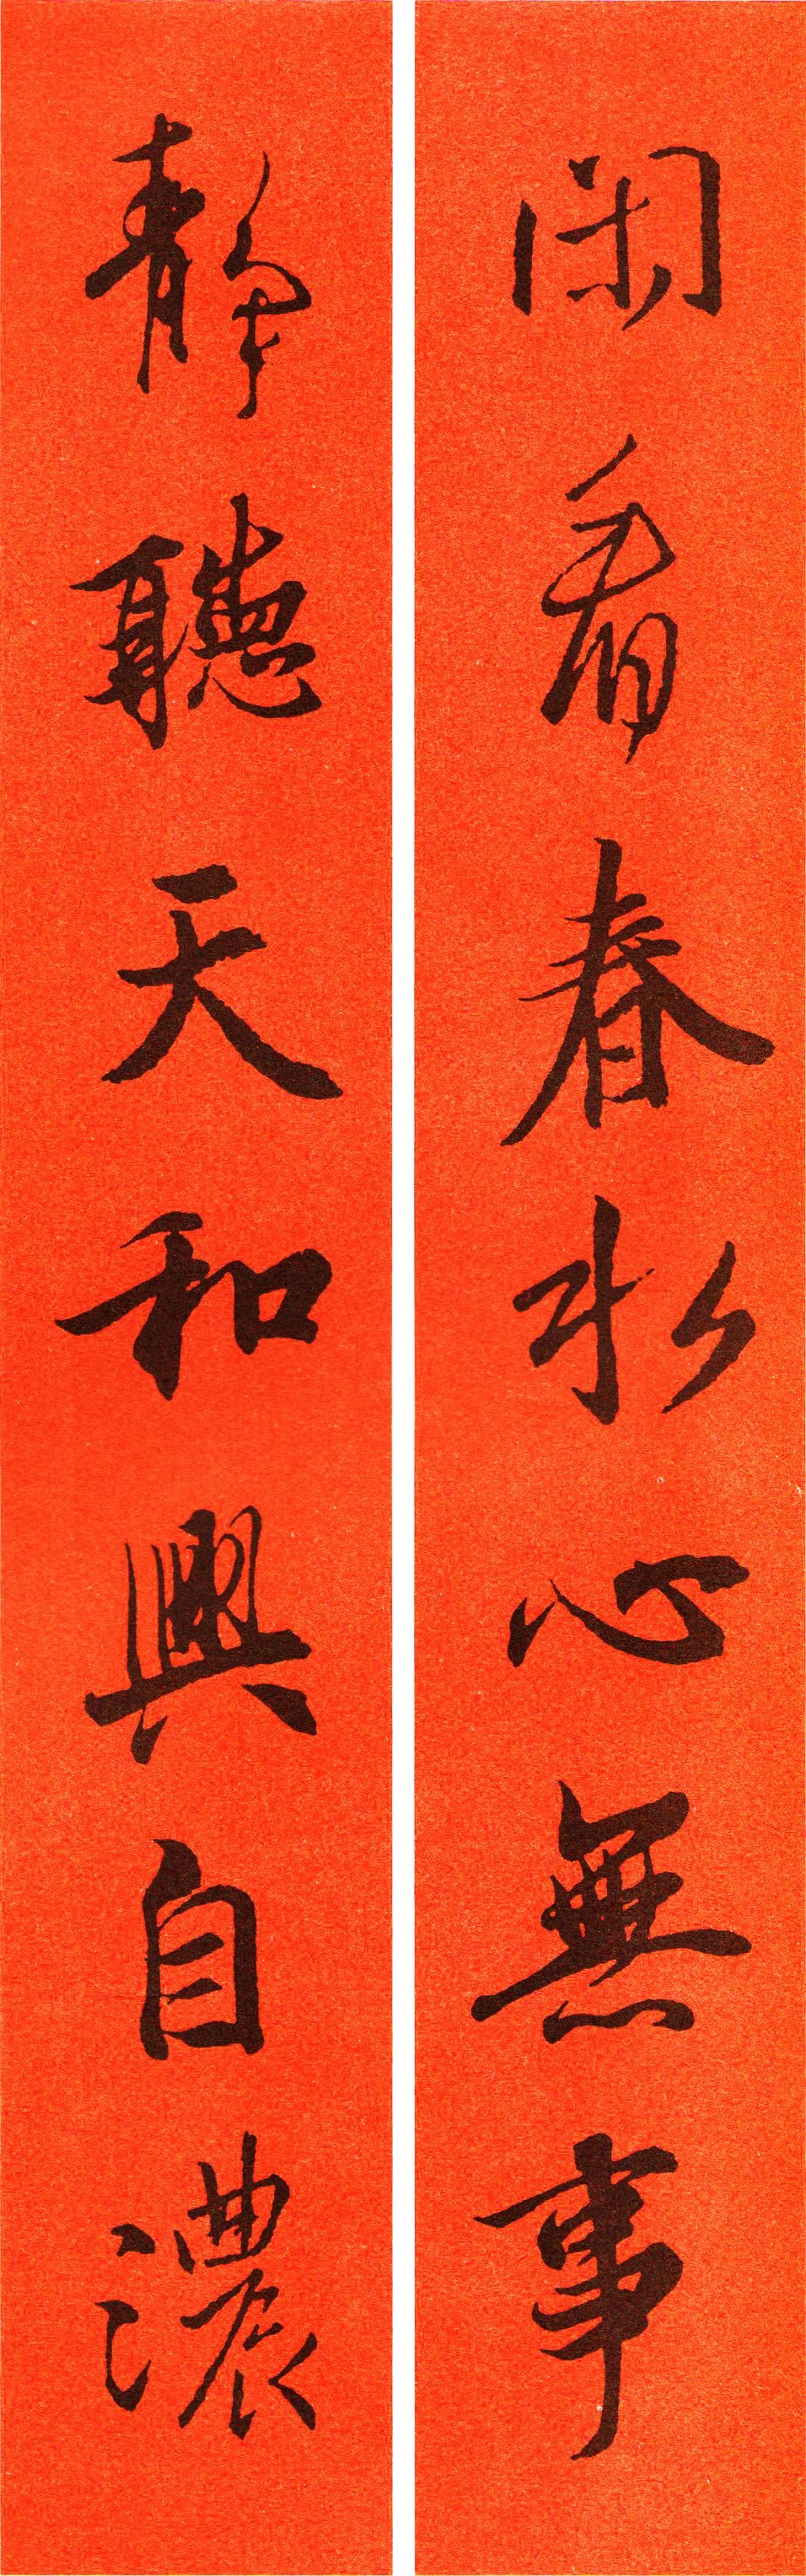 閑看春水心無事
靜聽天和興自濃